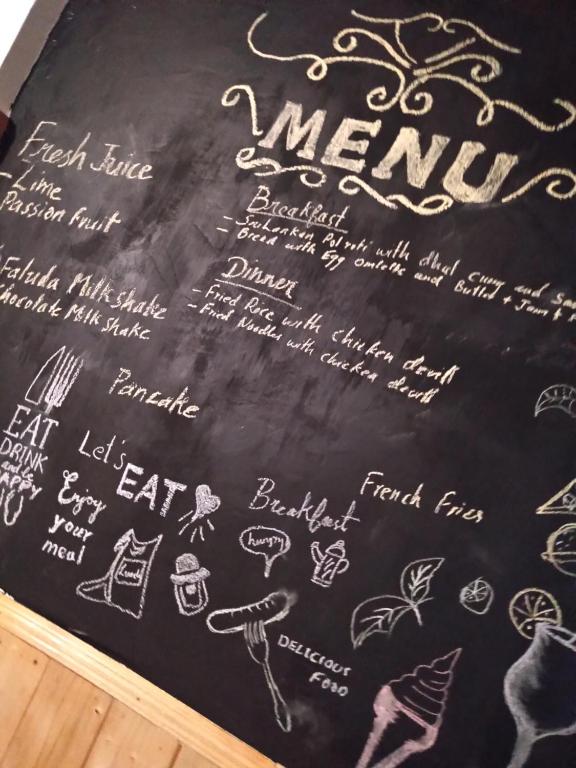 MENU
Fresh Juice
- Lime
Passion fruit
Faluda Milk shake
Chocolate Milk shake
Breakfast
- SriLankan Pol roti with dhal Curry and
- Bread with Egg Omlette and Butter + Jam +
Dinner
- Fried Rice with chicken devill
- Fried Noodles with chicken devill
Pancake
French Fries
EAT
DRINK
and be
HAPPY
Let's
EAT
Enjoy
your
meal
Breakfast
hungry
DELICIOUS
FOOD